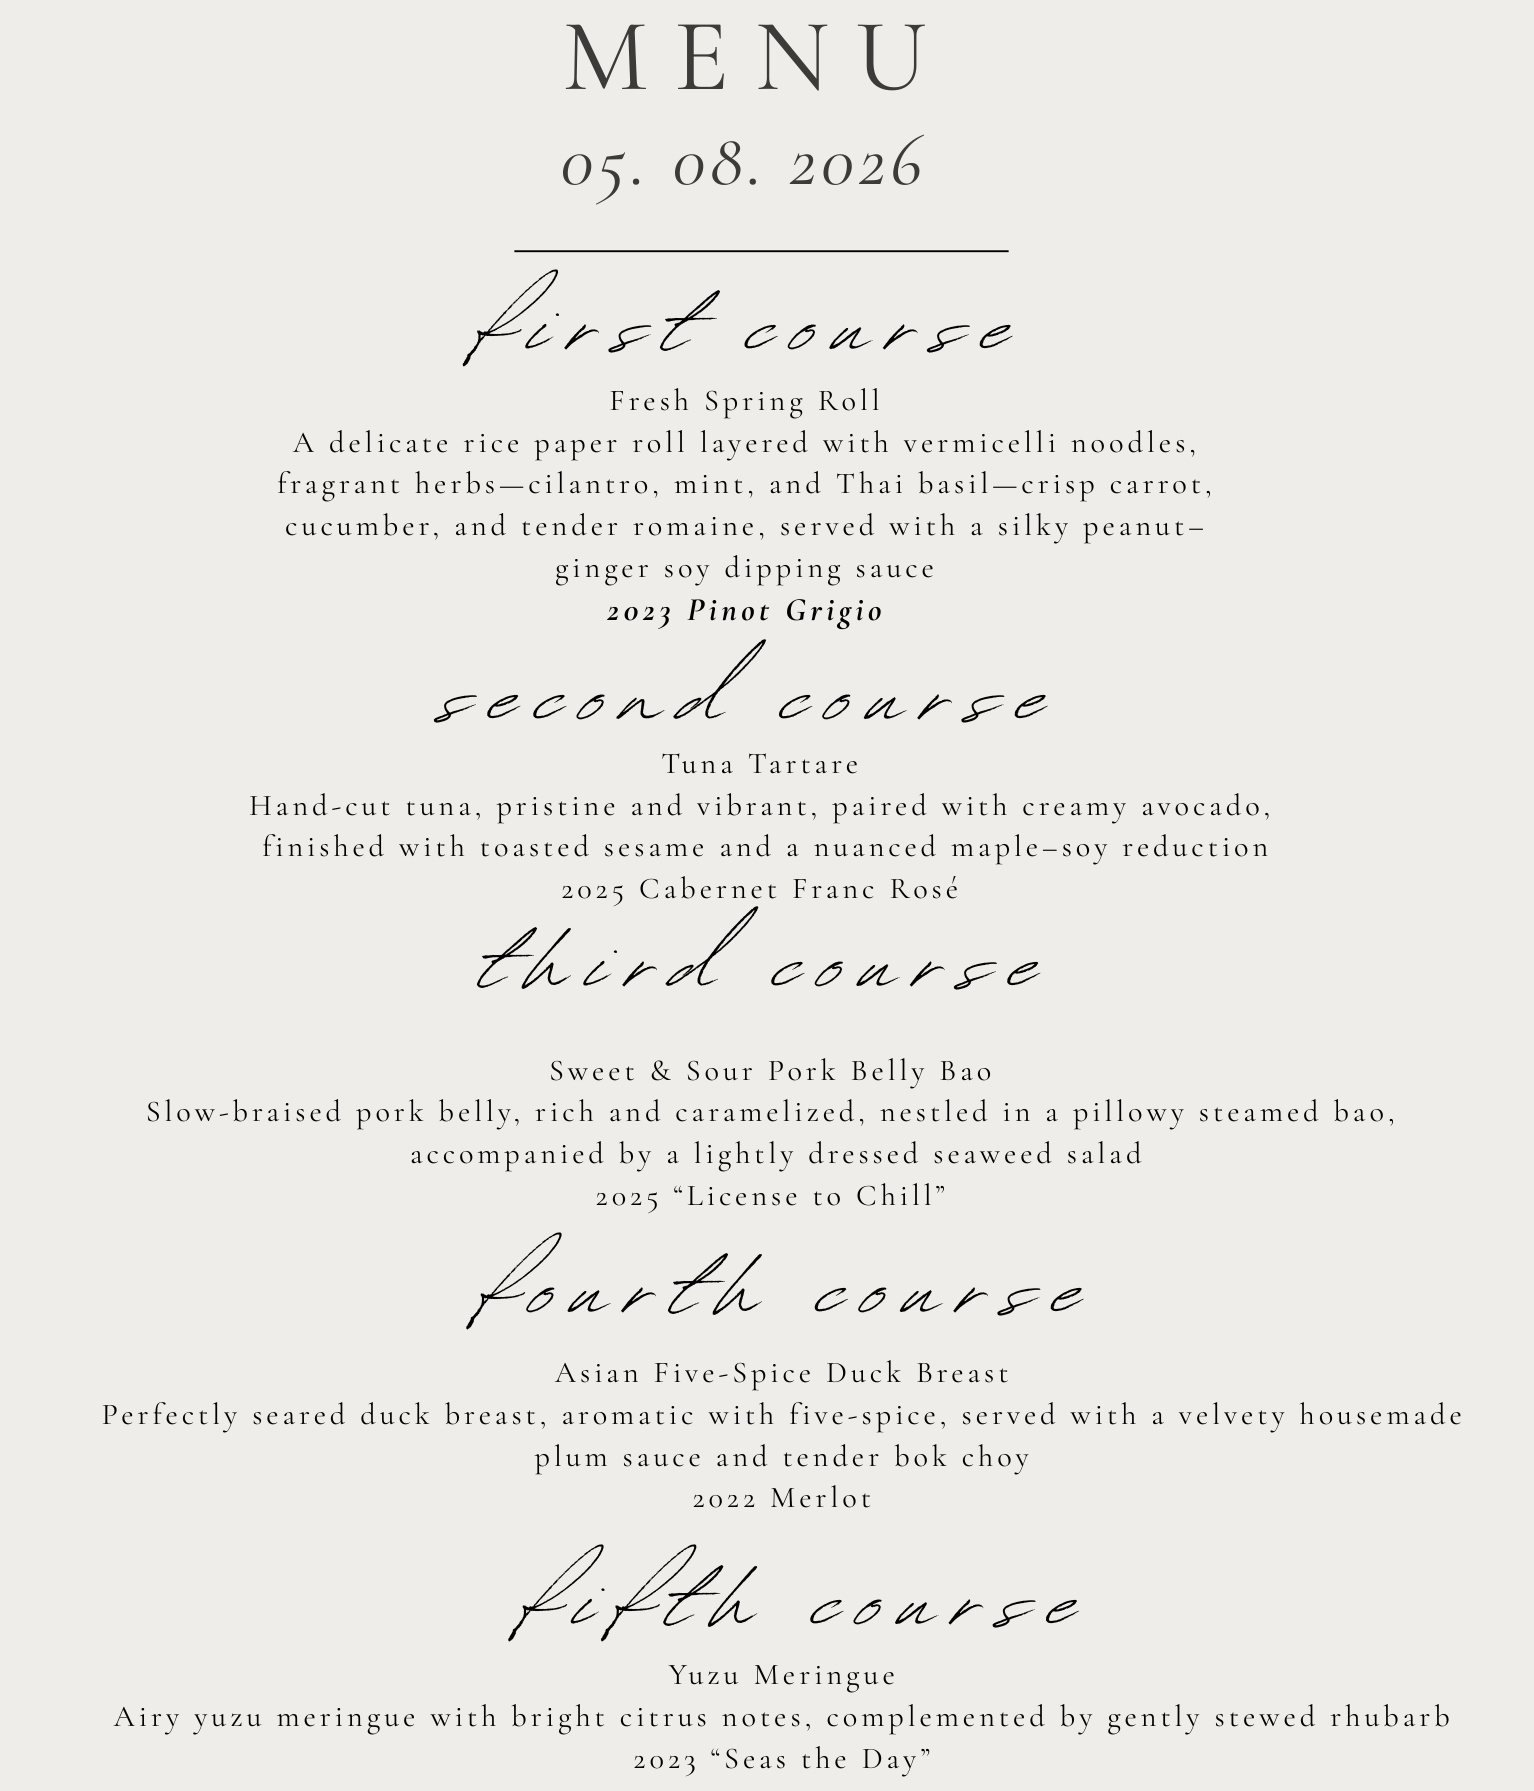 MENU
05. 08. 2026
first course
Fresh Spring Roll
A delicate rice paper roll layered with vermicelli noodles,
fragrant herbs—cilantro, mint, and Thai basil—crisp carrot,
cucumber, and tender romaine, served with a silky peanut–
ginger soy dipping sauce
2023 Pinot Grigio
second course
Tuna Tartare
Hand-cut tuna, pristine and vibrant, paired with creamy avocado,
finished with toasted sesame and a nuanced maple–soy reduction
2025 Cabernet Franc Rosé
third course
Sweet & Sour Pork Belly Bao
Slow-braised pork belly, rich and caramelized, nestled in a pillowy steamed bao,
accompanied by a lightly dressed seaweed salad
2025 “License to Chill”
fourth course
Asian Five-Spice Duck Breast
Perfectly seared duck breast, aromatic with five-spice, served with a velvety housemade
plum sauce and tender bok choy
2022 Merlot
fifth course
Yuzu Meringue
Airy yuzu meringue with bright citrus notes, complemented by gently stewed rhubarb
2023 “Seas the Day”